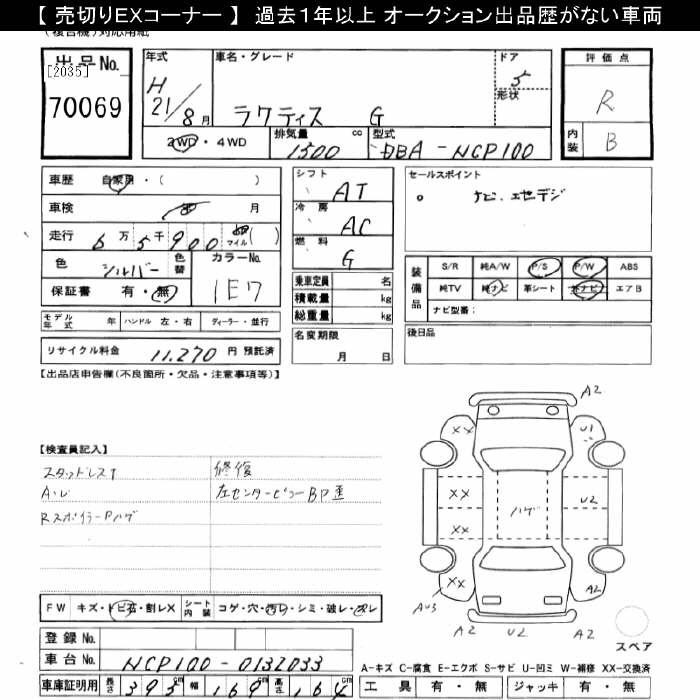 【 売切りEXコーナー 】 過去1年以上 オークション出品歴がない車両
(複合機)対応用紙
出品No.
[2035]
70069
年式
H
21/8月
車名・グレード
ラクティス G
ドア
5
形状
2WD・4WD
排気量
1500
cc
型式
DBA-NCP100
評価点
R
内装
B
車歴 自家用・( )
車検 月
走行 6万5千900 マイル( )
色 シルバー
色替
カラーNo.
1E7
保証書 有・無
シフト AT
冷房 AC
燃料 G
乗車定員 名
積載量 kg
総重量 kg
セールスポイント
ナビ、エセデジ
装備品
S/R 純A/W P/S P/W ABS
純TV 純ナビ 革シート 社ナビ エアB
ナビ型番:
モデル年式 年 ハンドル 左・右 ディーラー・並行
リサイクル料金 11,270 円 預託済
名変期限
月 日
後日品
【出品店申告欄(不良箇所・欠品・注意事項等)】
【検査員記入】
スタットレス
修復
左センターピラーBP歪
RスポイラーPハゲ
A2
XX
U1
XX
XX
ハゲ
U2
XX
AU3
A2
A2
U2
A2
スペア
FW キズ・トビ石・割レX シート内装 コゲ・穴・切レ・シミ・破レ・スレ
登録No.
車台No. NCP100-0132033
車庫証明用 長さ 395cm 幅 169cm 高さ 164cm
A-キズ C-腐食 E-エクボ S-サビ U-凹ミ W-補修 XX-交換済
工具 有・無 ジャッキ 有・無